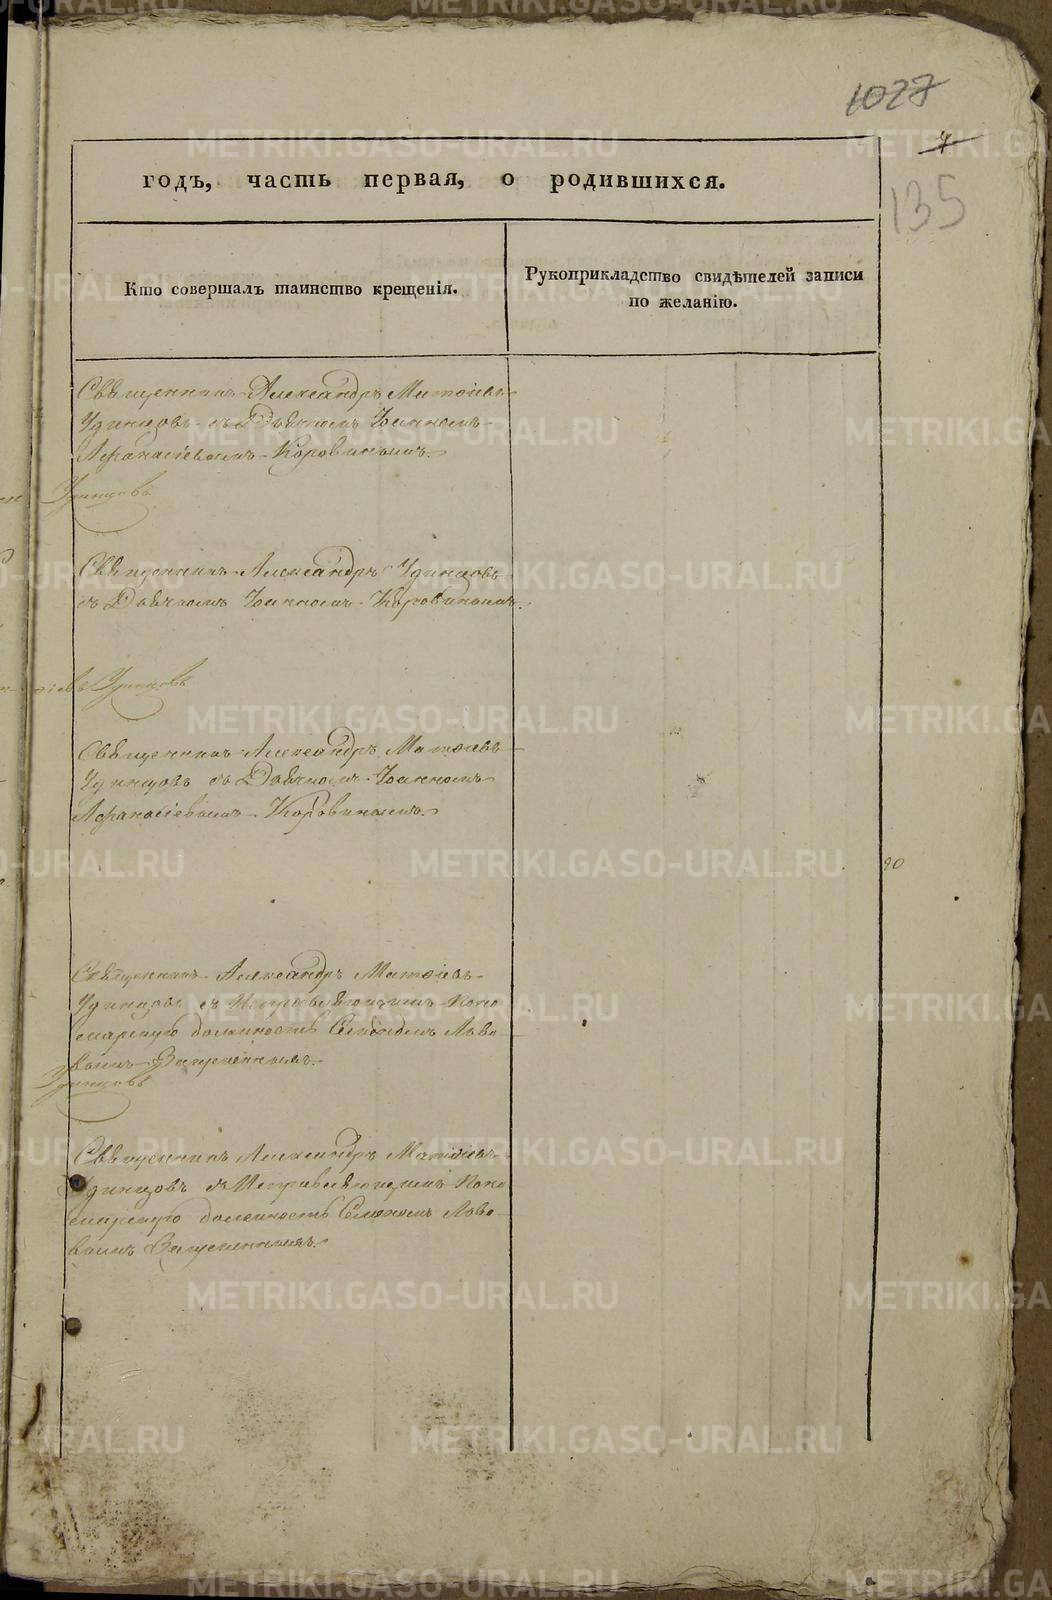 1027
4
135
годъ, часть первая, о родившихся.
Кто совершалъ таинство крещенія.
Рукоприкладство свидѣтелей записи
по желанію.
Священникъ Александръ Матѳіевъ
Удинцовъ съ Дьячкомъ Іоанномъ
Афанасіевымъ Коровинымъ.
Удинцовъ
Священникъ Александръ Удинцовъ
съ Дьячкомъ Іоанномъ Коровинымъ.
Удинцовъ
Священникъ Александръ Матѳіевъ
Удинцовъ съ Дьячкомъ Іоанномъ
Афанасіевымъ Коровинымъ.
90
Священникъ Александръ Матѳіевъ
Удинцовъ съ Исправляющимъ Поно
марскую должность Львo
вымъ
Удинцовъ
Священникъ Александръ Матѳіевъ
Удинцовъ съ Исправляющимъ Поно
марскую должность Львo
вымъ
METRIKI.GASO-URAL.RU